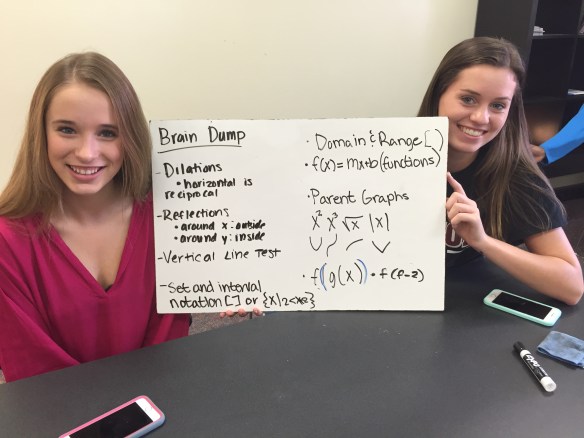 Brain Dump
- Dilations
• horizontal is
reciprocal
- Reflections
• around x: outside
• around y: inside
- Vertical Line Test
- Set and interval
notation [ ] or {x|2<x≤2}
• Domain & Range [ )
• f(x) = mx+b (functions)
• Parent Graphs
x² x³ √x |x|
• f(g(x)) • f(f-2)
EXPO